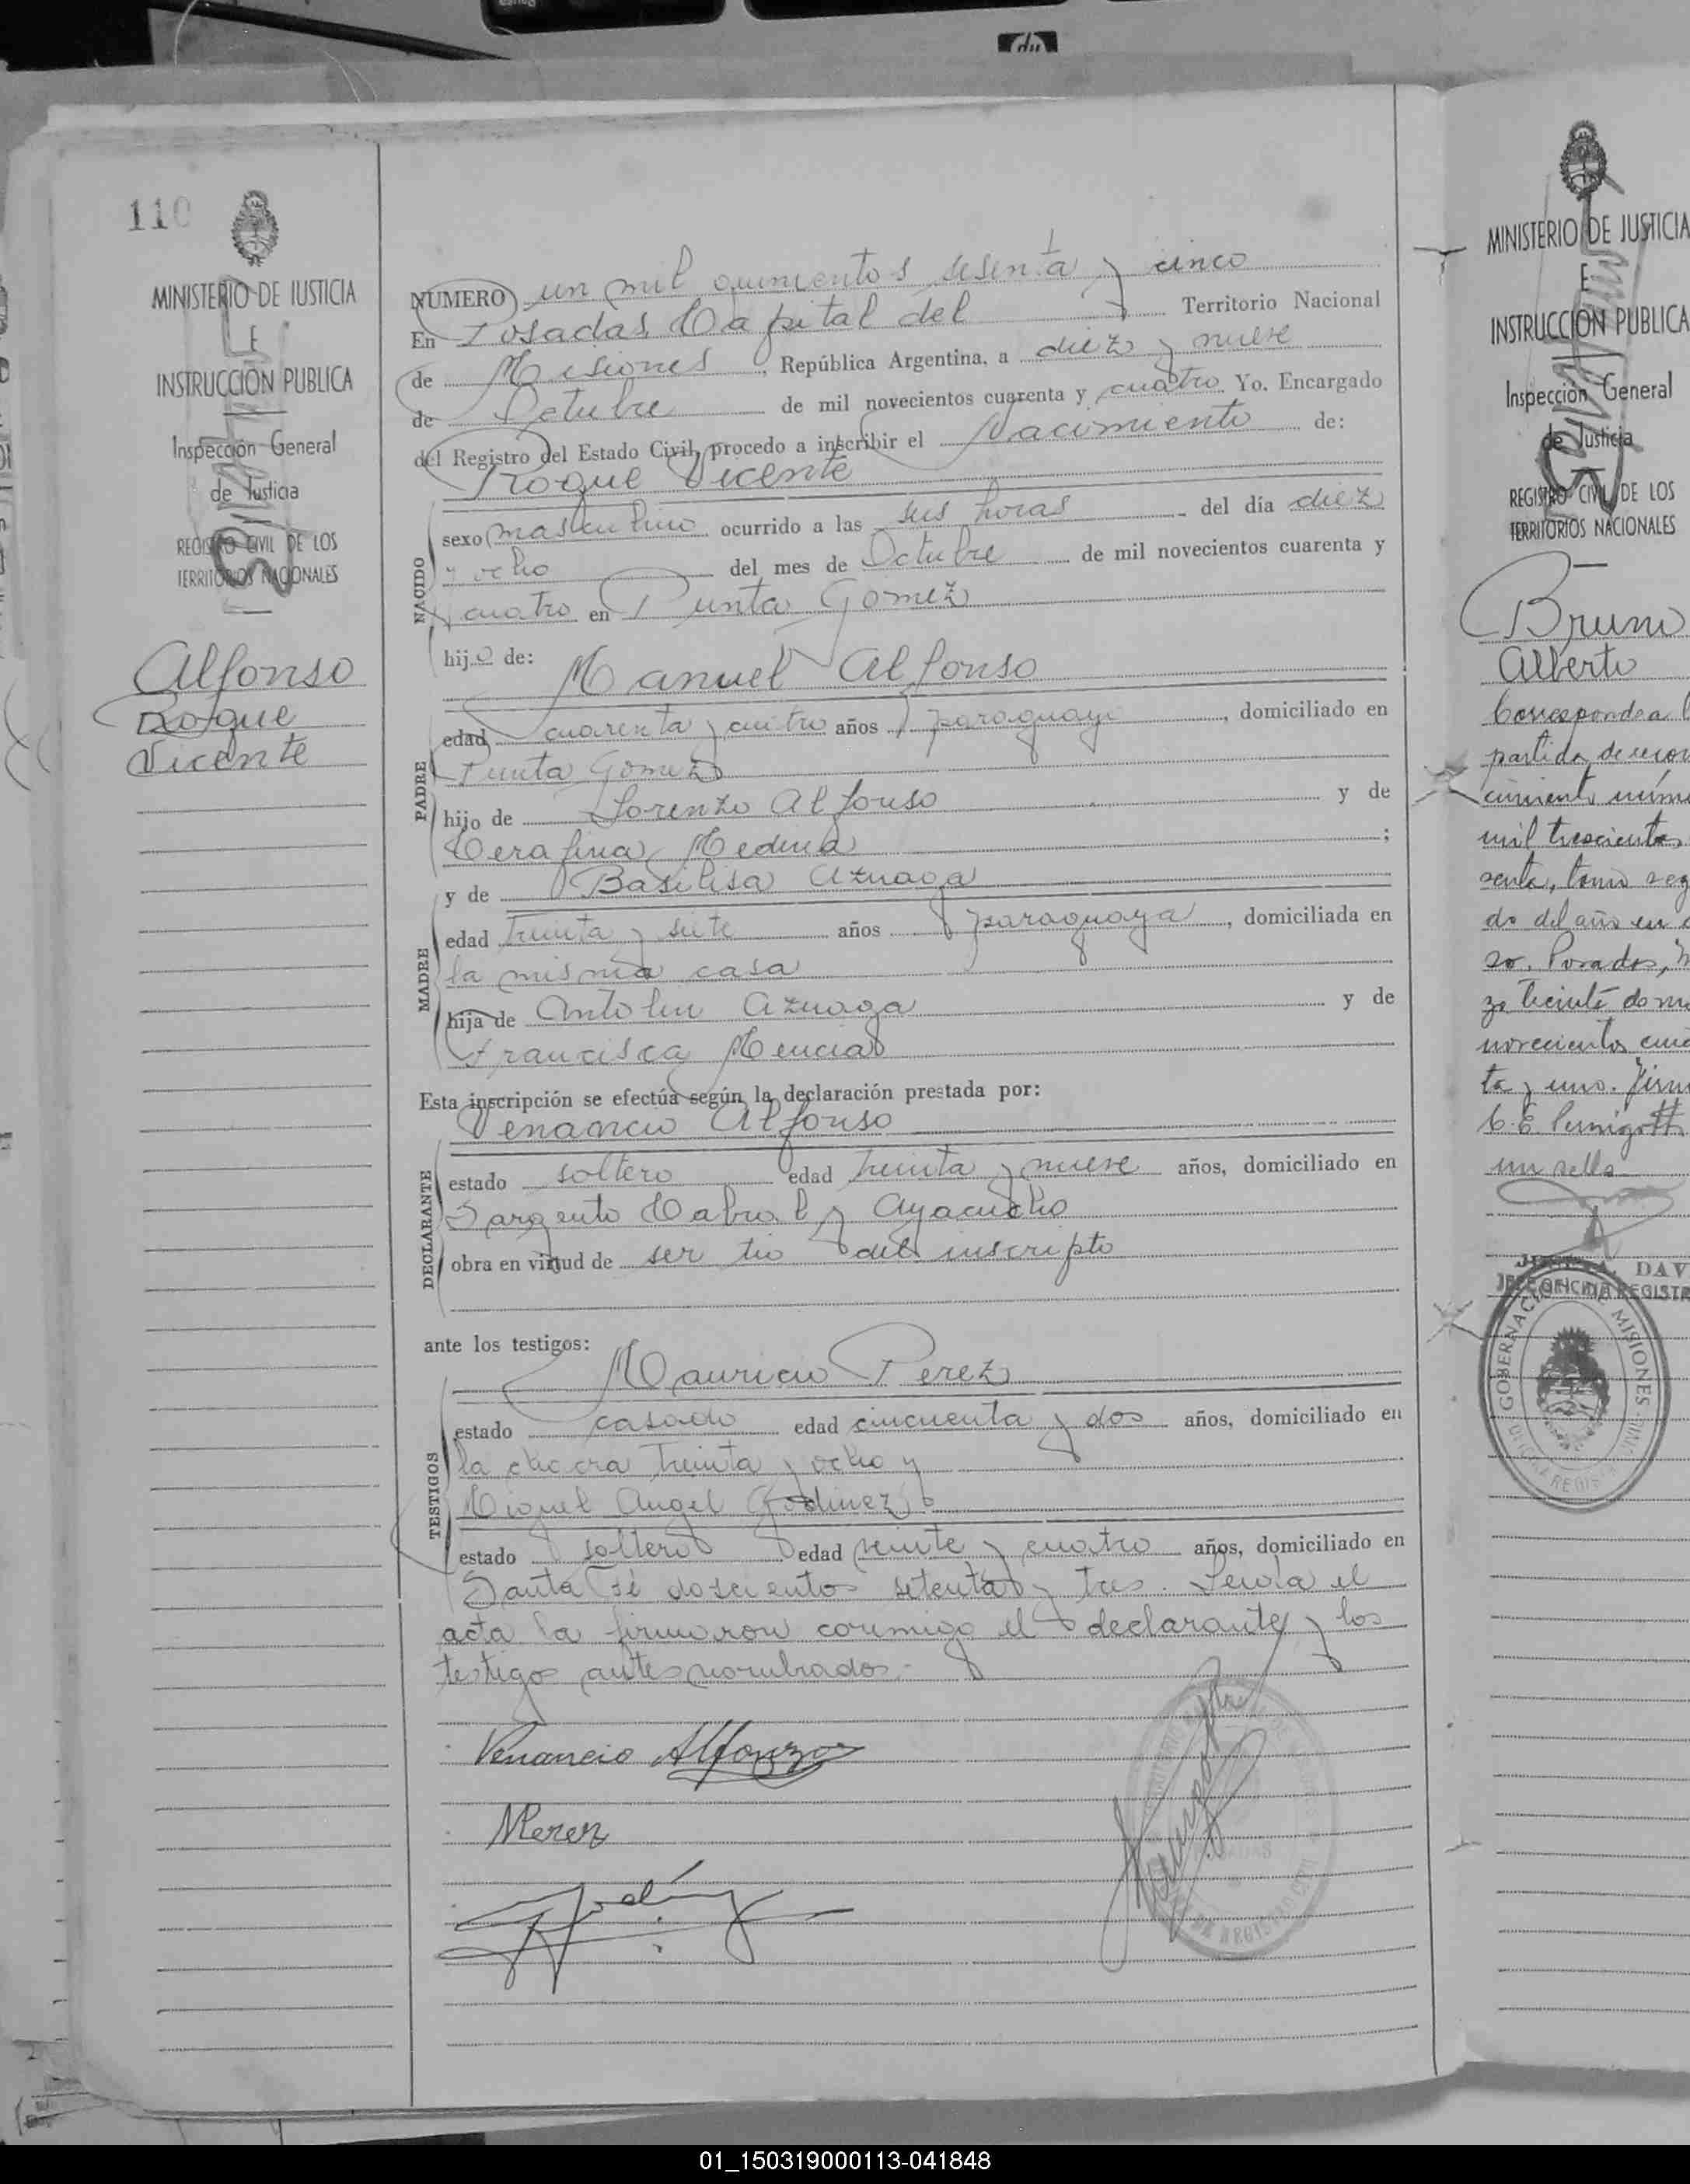 110
MINISTERIO DE JUSTICIA
E
INSTRUCCIÓN PUBLICA
Inspección General
de Justicia
REGISTRO CIVIL DE LOS
TERRITORIOS NACIONALES
Alfonso
Roque
Vicente
NUMERO un mil quinientos sesenta y cinco
En Posadas Capital del Territorio Nacional
de Misiones, República Argentina, a diez y nueve
de Octubre de mil novecientos cuarenta y cuatro Yo. Encargado
del Registro del Estado Civil, procedo a inscribir el Nacimiento de:
Roque Vicente
NACIDO
sexo masculino ocurrido a las seis horas del día diez
y ocho del mes de Octubre de mil novecientos cuarenta y
cuatro en Punta Gomez
hijo de:
Manuel Alfonso
PADRE
edad cuarenta y cuatro años paraguayo, domiciliado en
Punta Gomez
hijo de Lorenzo Alfonso y de
Serafina Medina;
y de Basilisa Azuaga
MADRE
edad treinta y siete años paraguaya, domiciliada en
la misma casa
hija de Antolin Azuaga y de
Francisca Mencia
Esta inscripción se efectúa según la declaración prestada por:
Venancio Alfonso
DECLARANTE
estado soltero edad treinta y nueve años, domiciliado en
Sargento Cabral y Ayacucho
obra en virtud de ser tio del inscripto
ante los testigos:
Mauricio Perez
TESTIGOS
estado casado edad cincuenta y dos años, domiciliado en
la chacra treinta y ocho y
Miguel Angel Godinez
estado soltero edad veinte y cuatro años, domiciliado en
Santa Fé doscientos setenta y tres. Leida el
acta la firmaron conmigo el declarante y los
testigos antes nombrados.
Venancio Alfonzo
MPerez
MINISTERIO DE JUSTICIA
E
INSTRUCCION PUBLICA
Inspección General
de Justicia
REGISTRO CIVIL DE LOS
TERRITORIOS NACIONALES
Bruno
Alberto
Corresponde a
partida de
mil trescientos
do del año en
Posadas,
ta y uno.
un sello
DAV
JEFE OFICINA REGISTR
GOBERNACION DE MISIONES
01_150319000113-041848